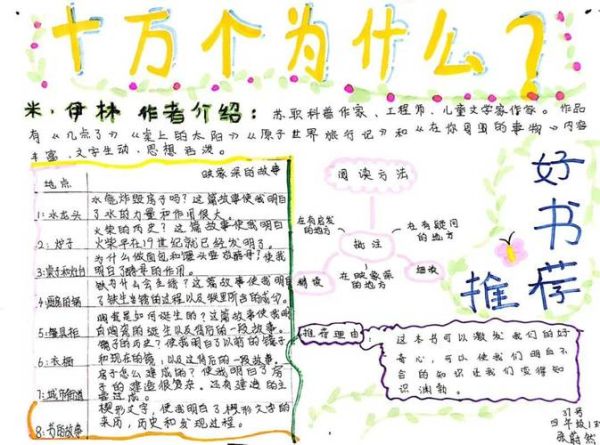 十万个为什么?
米·伊林 作者介绍:苏联科普作家、工程师、儿童文学家作家。作品
有《几点了》《桌上的太阳》《原子世界旅行记》和《在你身边的事物》内容
丰富、文字生动、思想活泼。
好书
推荐
地点 映象深的故事
1:水龙头 水能炸毁房子吗?这篇故事使我明白了水的力量和作用很大。
2:炉子 火柴的历史?这篇故事使我明白火柴早在19世纪就已经发明了。
3:桌子和灶台 为什么做面包和馒头要放酵母?使我明白了酵母的作用。
4:厨房的锅 铁为什么会生锈?这篇故事使我明白了铁生锈的过程以及铁里所含的高份。
5:餐具柜 陶瓷是如何诞生的?这篇故事使我明白陶瓷的诞生以及背后的一段故事。
6:衣橱 镜子的历史?使我明白了以前的镜子和现在的镜,以及这背后的一段故事。
7:城市街道 房子怎么建成的?使我明白了房子的建造很繁杂。还有建造的主要过成。
8:书的故事 楔形文字,使我明白了楔形文字的来历,历史和发现过程。
阅读方法
在有启发的地方
在有疑问的地方
批注
精读
在映象深的地方
细读
推荐理由:
这本书可以激发我们的好
奇心,可以使我们明白不
同的知识让我们变得知
识渊勃。
31号
四年级